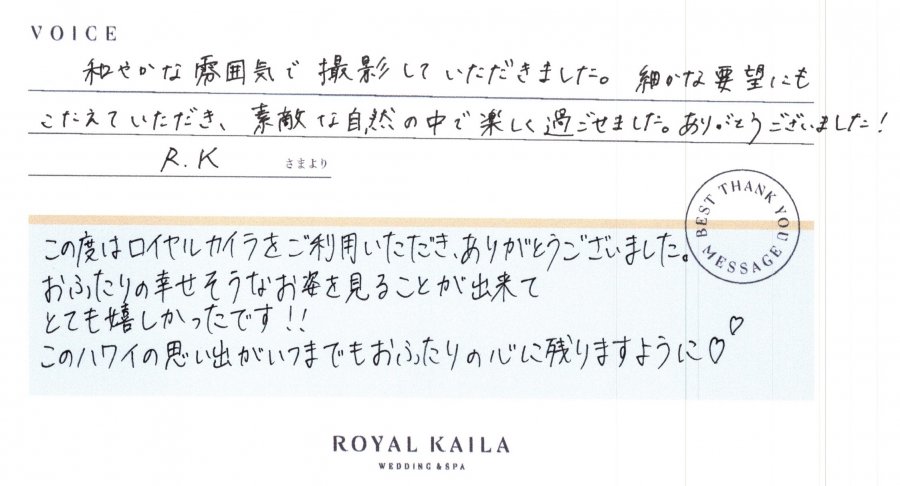 VOICE
和やかな雰囲気で撮影していただきました。細かな要望にも
こたえていただき、素敵な自然の中で楽しく過ごせました。ありがとうございました!
R.K さまより
BEST THANK YOU MESSAGE
この度はロイヤルカイラをご利用いただき、ありがとうございました。
おふたりの幸せそうなお姿を見ることが出来て
とても嬉しかったです!!
このハワイの思い出がいつまでもおふたりの心に残りますように♡♡
ROYAL KAILA
WEDDING & SPA